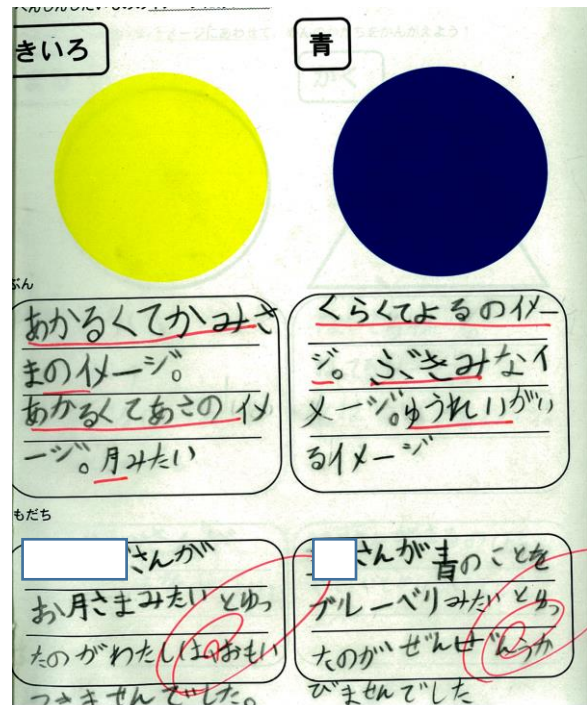 きいろ
青
ぶん
あかるくてかみさ
まのイメージ。
あかるくてあさのイメ
ージ。月みたい
くらくてよるのイメー
ジ。ぶきみなイ
メージ。ゆうれいがい
るイメージ
もだち
さんが
お月さまみたいとゆっ
たのがわたしはおもい
つきませんでした。
さんが青のことを
ブルーベリみたいとゆっ
たのがぜんせんうか
びませんでした